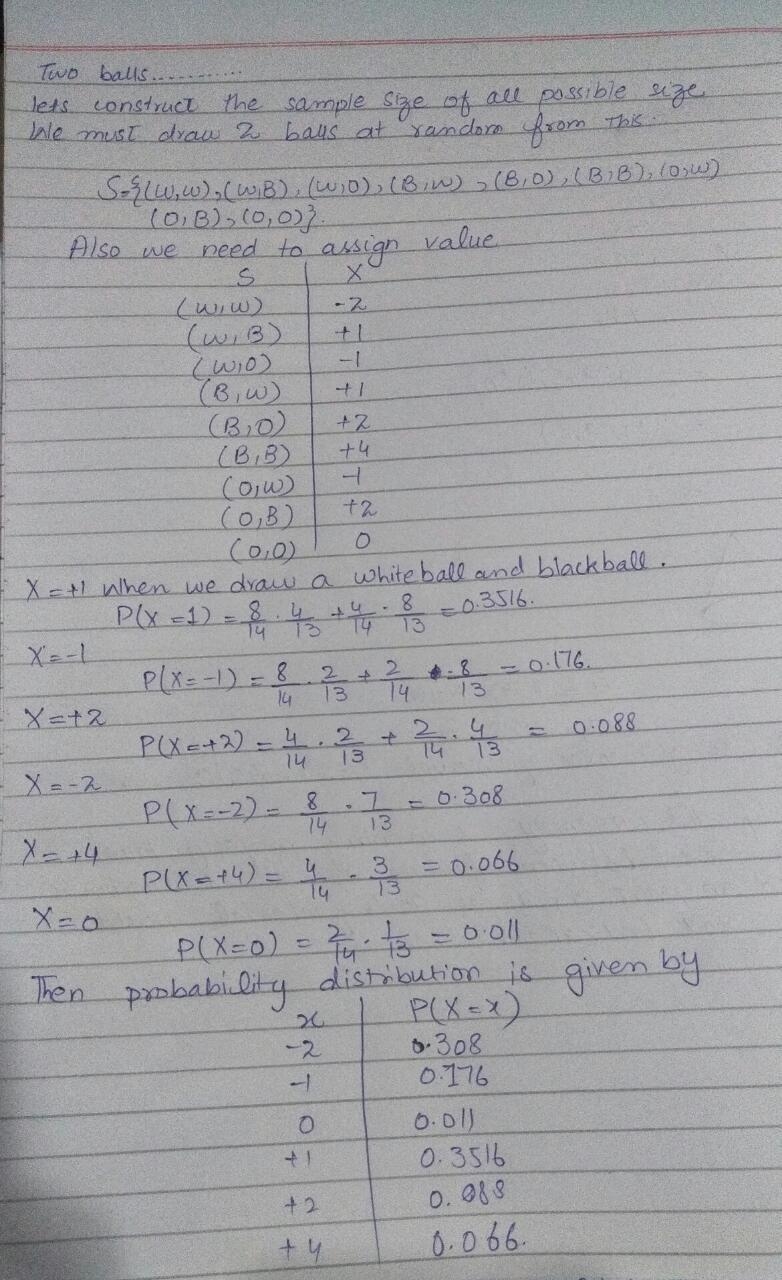 Two balls............
lets construct the sample size of all possible size
We must draw 2 balls at random from this.
S={(W,W),(W,B),(W,O),(B,W),(B,O),(B,B),(O,W)
(O,B),(O,O)}.
Also we need to assign value
S | X
(W,W) | -2
(W,B) | +1
(W,O) | -1
(B,W) | +1
(B,O) | +2
(B,B) | +4
(O,W) | -1
(O,B) | +2
(O,O) | 0
X=+1 When we draw a whiteball and blackball.
P(X=1) = 8/14 . 4/13 + 4/14 . 8/13 = 0.3516.
X=-1
P(X=-1) = 8/14 . 2/13 + 2/14 . 8/13 = 0.176.
X=+2
P(X=+2) = 4/14 . 2/13 + 2/14 . 4/13 = 0.088
X=-2
P(X=-2) = 8/14 . 7/13 = 0.308
X=+4
P(X=+4) = 4/14 . 3/13 = 0.066
X=0
P(X=0) = 2/14 . 1/13 = 0.011
Then probability distribution is given by
x | P(X=x)
-2 | 0.308
-1 | 0.176
0 | 0.011
+1 | 0.3516
+2 | 0.088
+4 | 0.066.